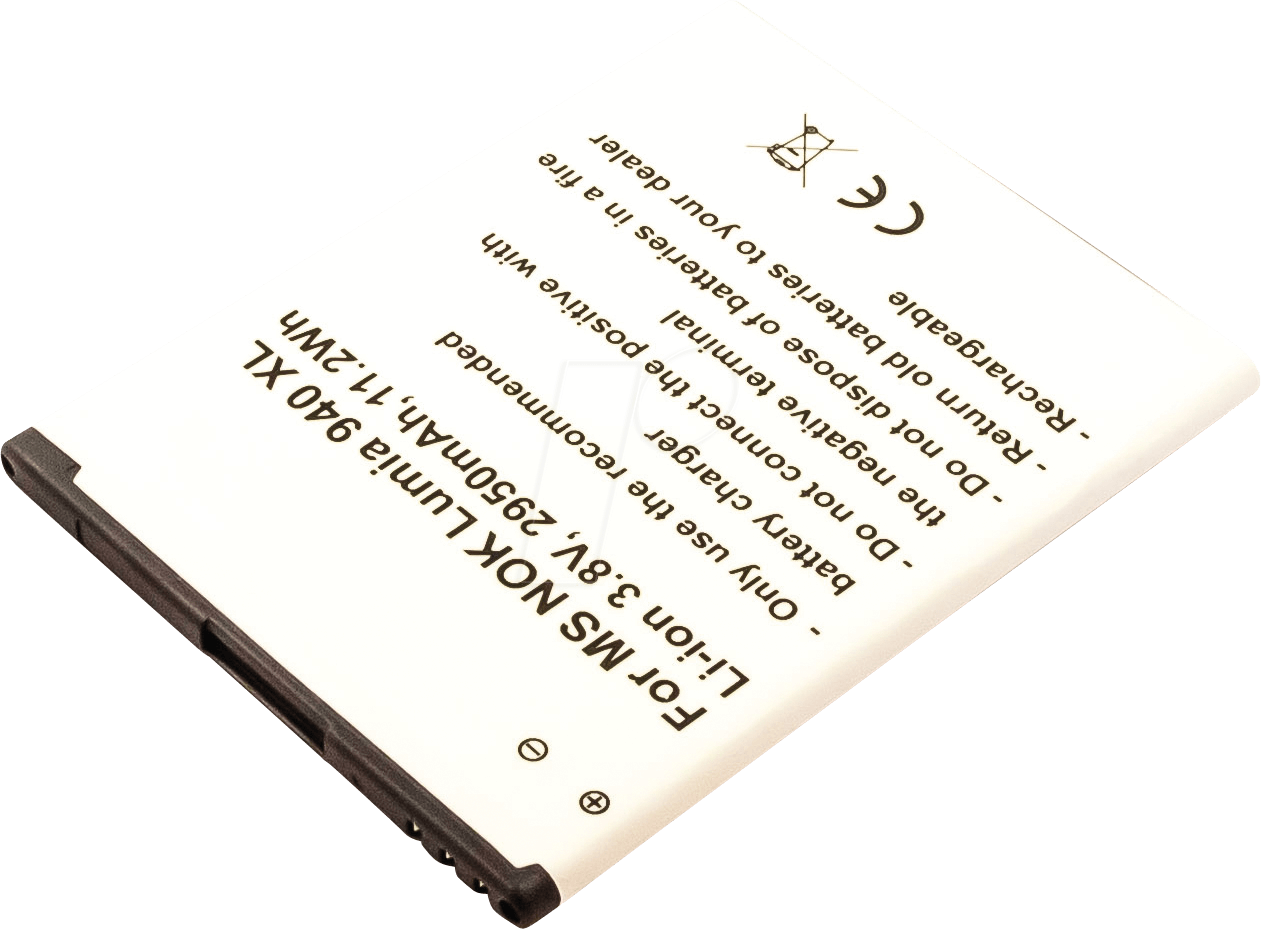 For MS NOK Lumia 940 XL
Li-ion 3.8V, 2950mAh, 11.2Wh
- Only use the recommended
battery charger
- Do not connect the positive with
the negative terminal
- Do not dispose of batteries in a fire
- Return old batteries to your dealer
- Rechargeable
CE